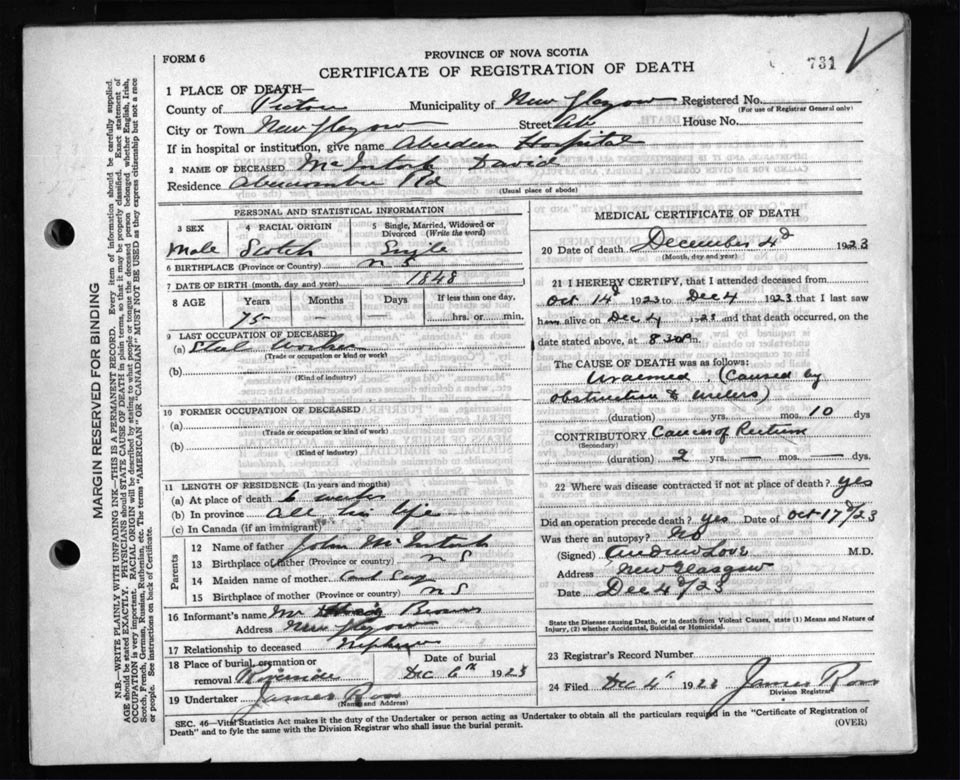 FORM 6
PROVINCE OF NOVA SCOTIA
CERTIFICATE OF REGISTRATION OF DEATH
731
1 PLACE OF DEATH—
County of Pictou Municipality of New Glasgow Registered No.
(For use of Registrar General only)
City or Town New Glasgow Street House No.
If in hospital or institution, give name Aberdeen Hospital
2 NAME OF DECEASED McIntosh David
Residence Abercrombie Rd
(Usual place of abode)
PERSONAL AND STATISTICAL INFORMATION
3 SEX 4 RACIAL ORIGIN 5 Single, Married, Widowed or Divorced (Write the word)
Male Scotch Single
6 BIRTHPLACE (Province or Country) N S
7 DATE OF BIRTH (month, day and year) 1848
8 AGE Years Months Days If less than one day,
75 — — hrs. or min.
9 LAST OCCUPATION OF DECEASED
(a) Steel Worker
(Trade or occupation or kind or work)
(b)
(Kind of industry)
10 FORMER OCCUPATION OF DECEASED
(a)
(Trade or occupation or kind of work)
(b)
(Kind of industry)
11 LENGTH OF RESIDENCE (In years and months)
(a) At place of death 6 weeks
(b) In province all his life
(c) In Canada (if an immigrant)
Parents
12 Name of father John McIntosh
13 Birthplace of father (Province or country) N S
14 Maiden name of mother
15 Birthplace of mother (Province or country) N S
16 Informant's name Mr Brown
Address New Glasgow
17 Relationship to deceased Nephew
18 Place of burial, cremation or removal Riverside
Date of burial Dec 6th 1923
19 Undertaker James Ross
(Name and Address)
MEDICAL CERTIFICATE OF DEATH
20 Date of death December 4d 1923
(Month, day and year)
21 I HEREBY CERTIFY, that I attended deceased from
Oct 14d 1923 to Dec 4 1923 that I last saw
him alive on Dec 4 1923 and that death occurred, on the
date stated above, at 8.30 m.
The CAUSE OF DEATH was as follows:
Uraemia, (Caused by
obstruction of ureters)
(duration) yrs. mos. 10 dys
CONTRIBUTORY Cancer of Rectum
(Secondary)
(duration) 2 yrs. — mos. — dys.
22 Where was disease contracted if not at place of death? yes
Did an operation precede death? yes Date of Oct 17d/23
Was there an autopsy? No
(Signed) Andrew Love M.D.
Address New Glasgow
Date Dec 4d/23
State the Disease causing Death, or in death from Violent Causes, state (1) Means and Nature of
Injury, (2) whether Accidental, Suicidal or Homicidal.
23 Registrar's Record Number
24 Filed Dec 4th 1923 James Ross
Division Registrar
SEC. 46—Vital Statistics Act makes it the duty of the Undertaker or person acting as Undertaker to obtain all the particulars required in the "Certificate of Registration of
Death" and to fyle the same with the Division Registrar who shall issue the burial permit.
(OVER)
MARGIN RESERVED FOR BINDING
N.B.—WRITE PLAINLY WITH UNFADING INK—THIS IS A PERMANENT RECORD. Every item of information should be carefully supplied.
AGE should be stated EXACTLY. PHYSICIANS should STATE CAUSE OF DEATH in plain terms, so that it may be properly classified. Exact statement of
OCCUPATION is very important. RACIAL ORIGIN will be described by stating to what people or tongue the deceased person belonged, whether English, Irish,
Scotch, French, German, Russian, Ruthenian, etc. The terms "AMERICAN" OR "CANADIAN" MUST NOT BE USED as they express citizenship but not a race
or people. See instructions on back of Certificate.